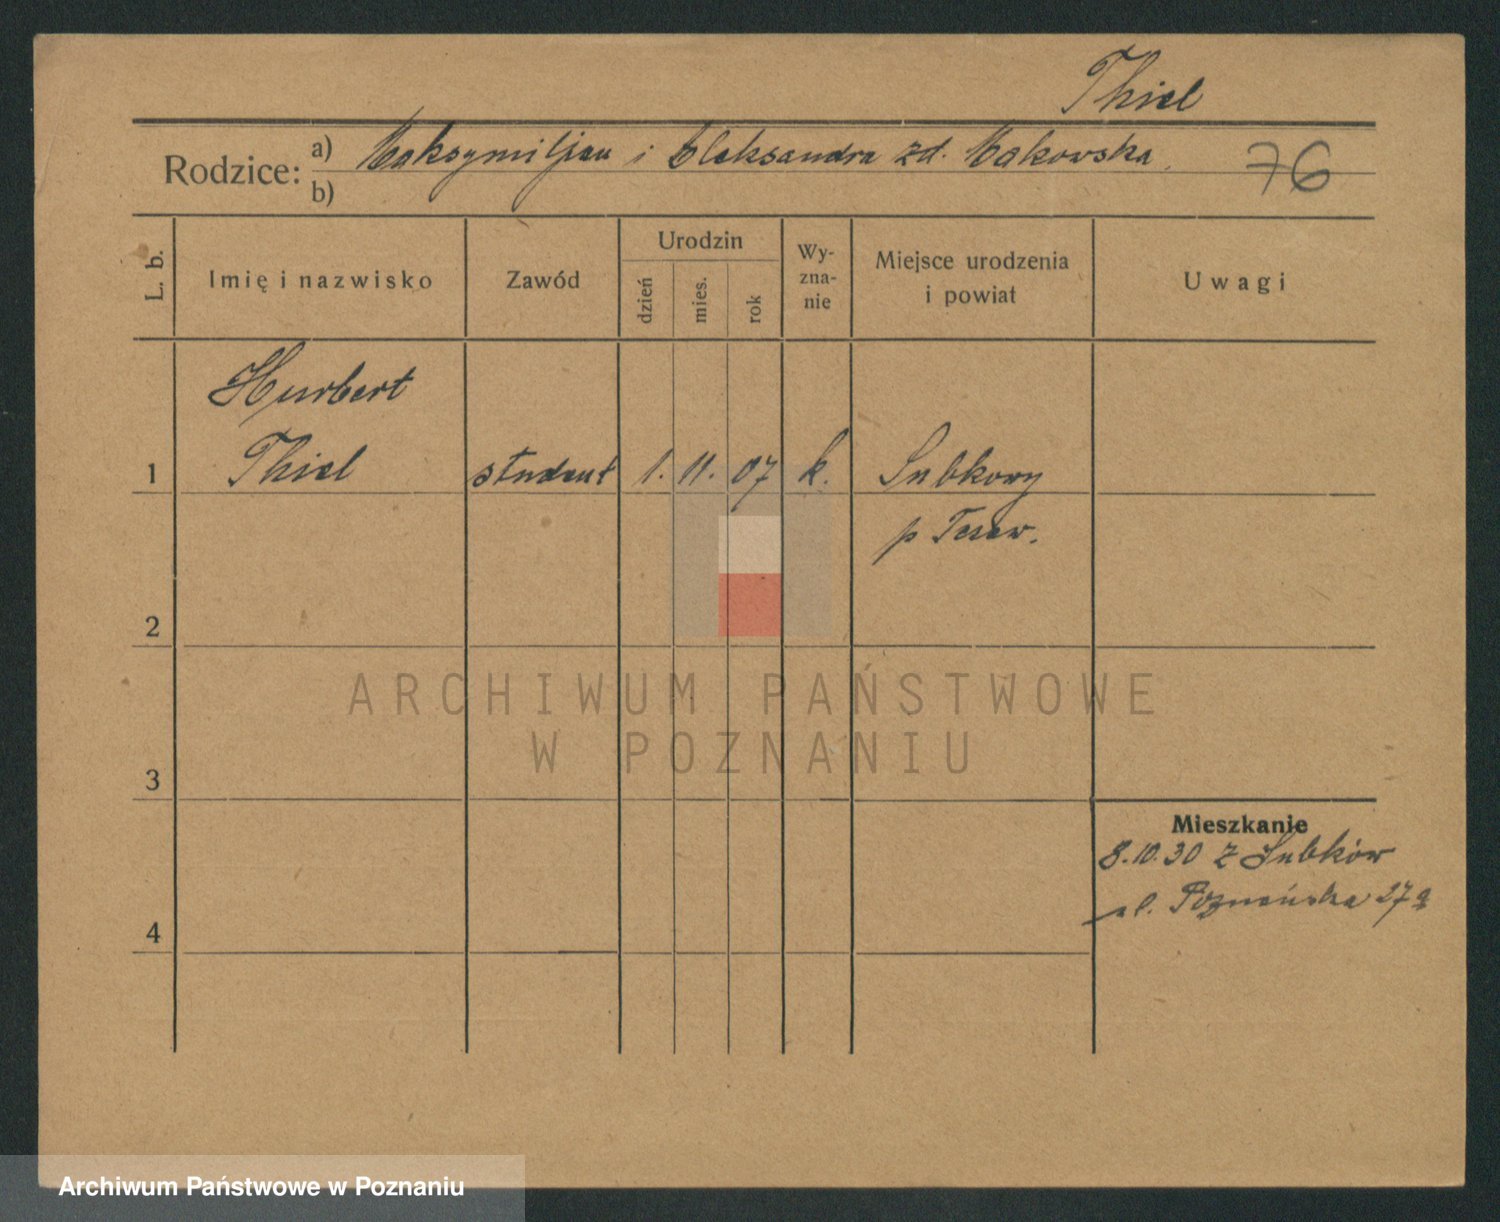 Thiel
Rodzice: a) Maksymiljan i Aleksandra zd. Makowska.
b)
76
L. b. Imię i nazwisko Zawód Urodzin dzień mies. rok Wyznanie Miejsce urodzenia i powiat Uwagi
Hurbert
1 Thiel student 1. 11. 07 k. Subkowy
p Tczew.
2
ARCHIWUM PAŃSTWOWE
W POZNANIU
3
Mieszkanie
8.10.30 z Subków
ul. Poznańska 27a
4
Archiwum Państwowe w Poznaniu